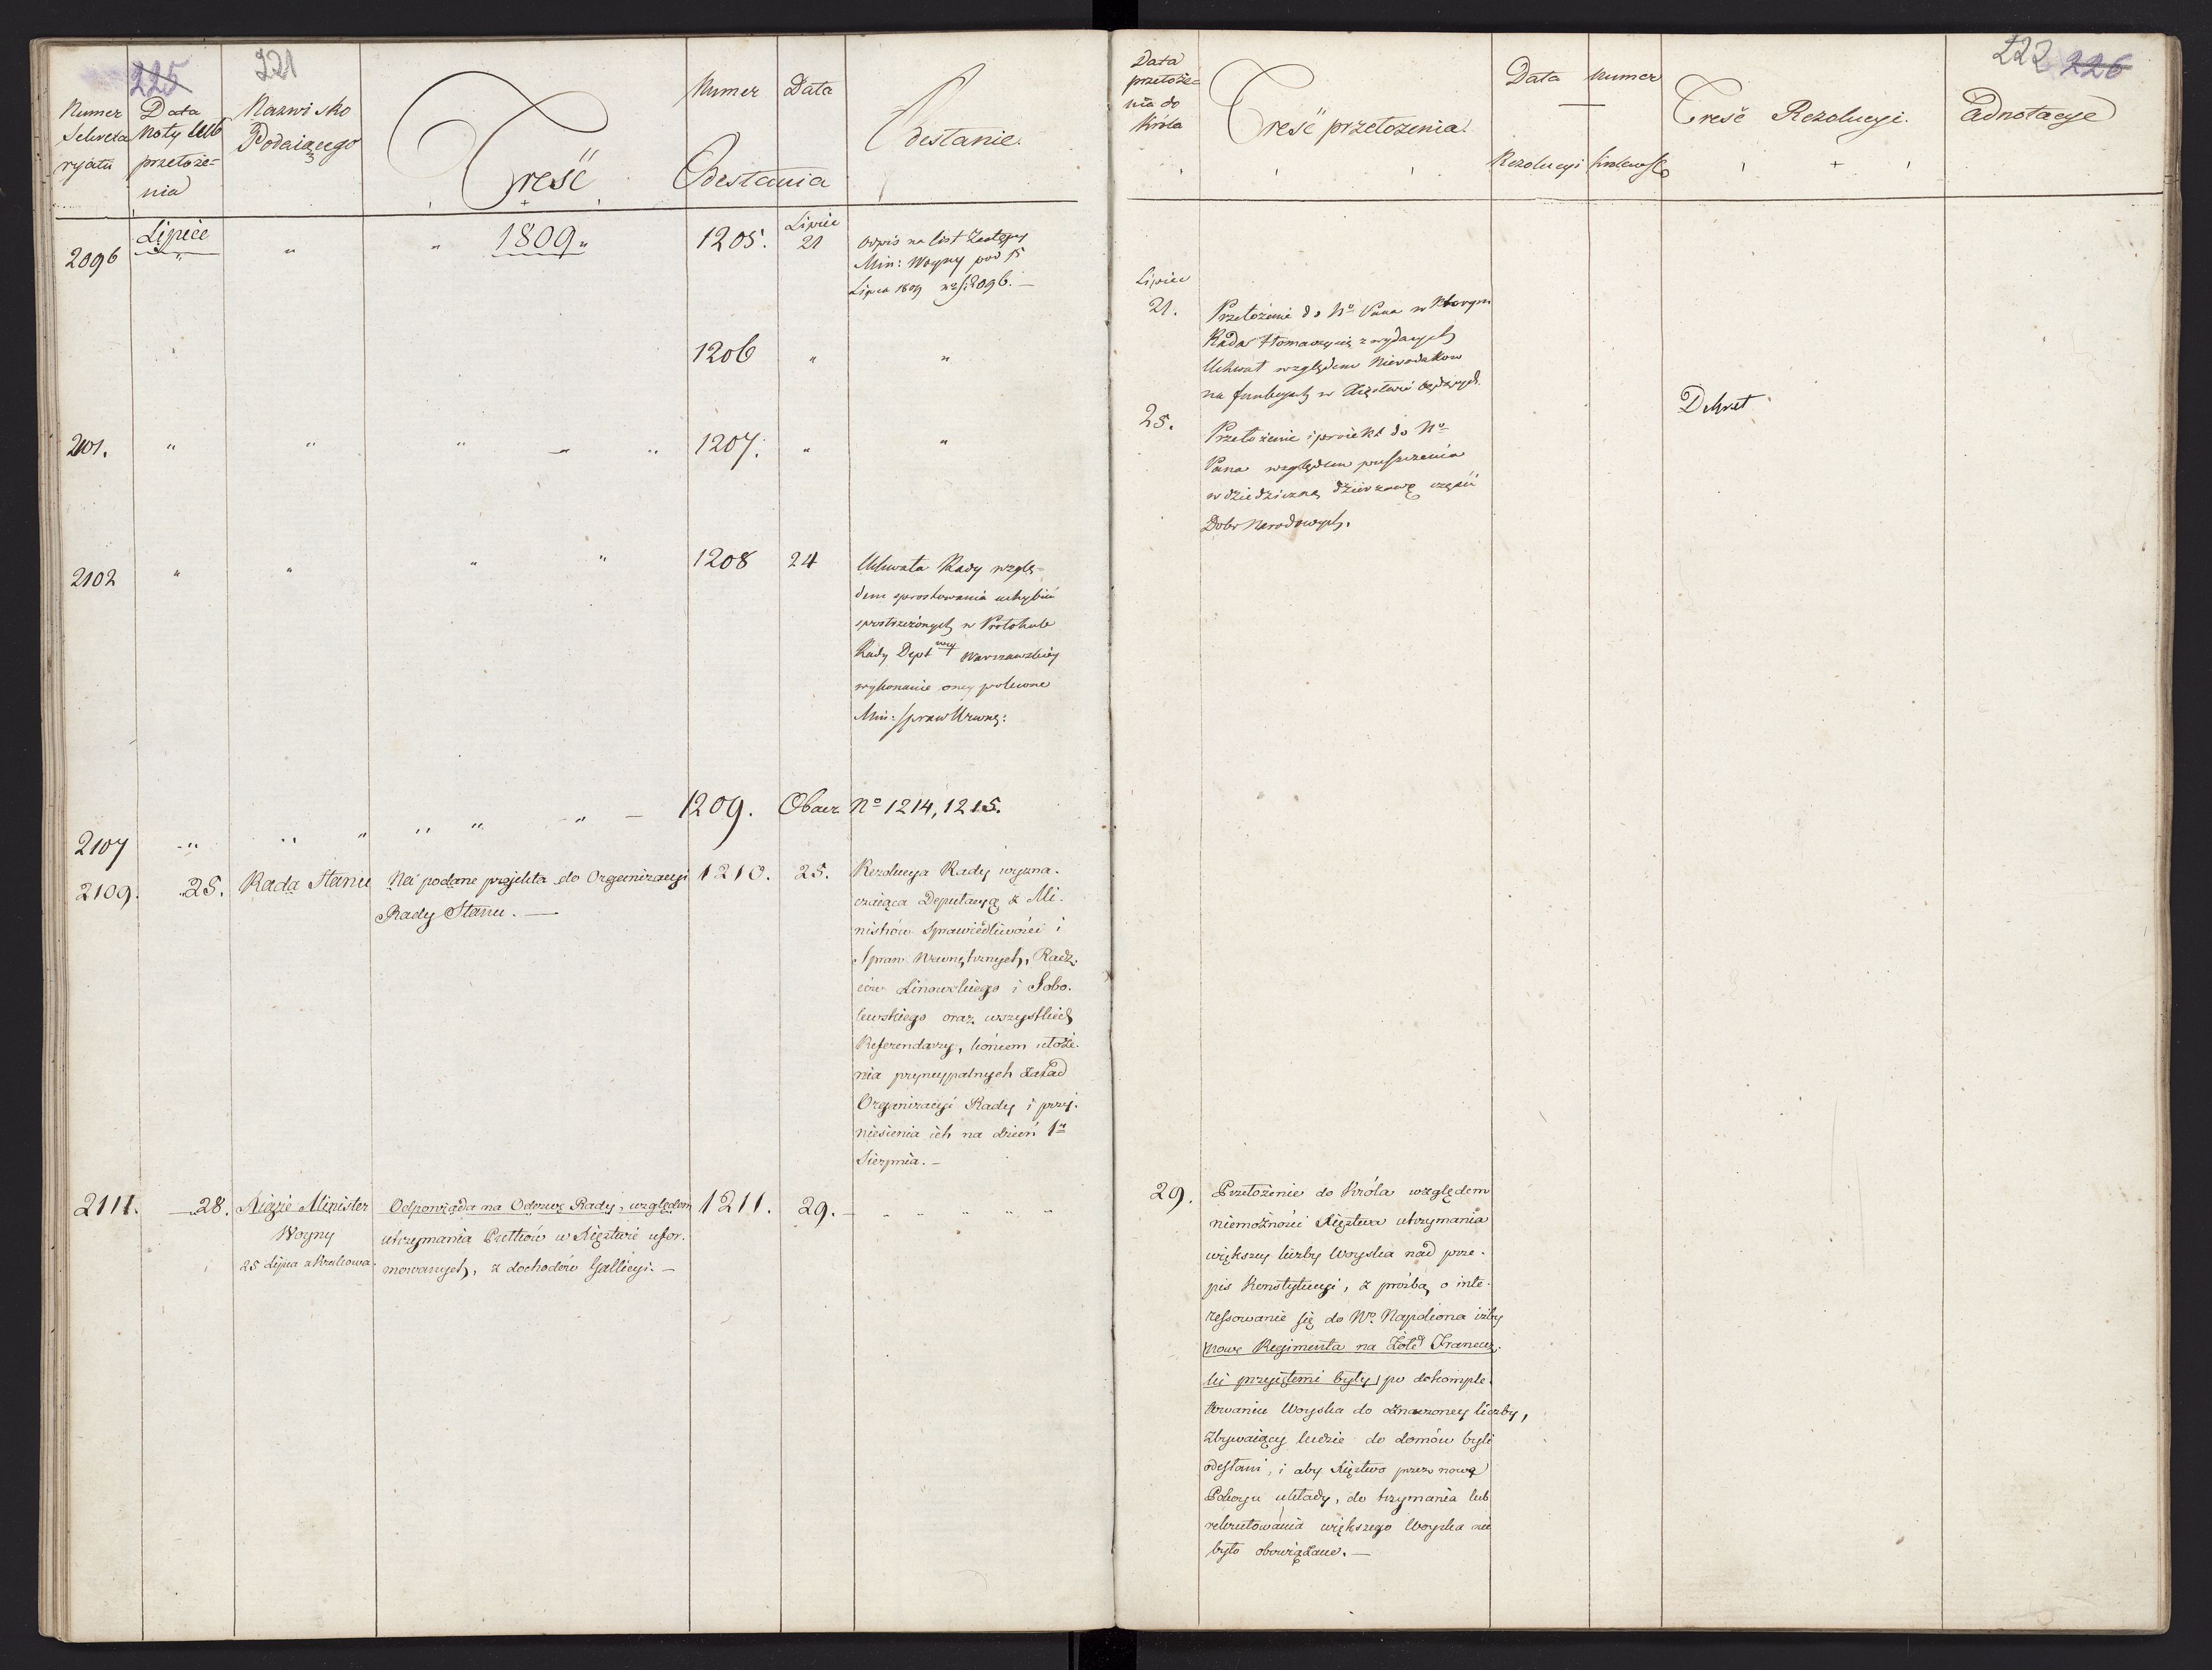 225 221
Numer Sekreta ryatu
Data Noty lub przełoże= nia
Nazwisko Podaiącego
Treść
Numer Data
Odesłania
Odesłanie.
Lipiec
2096 " " " 1809 " 1205. Lipiec 21
Odpis na list Zastępcy
Min: Woyny pod 15
Lipca 1809 no 2096. —
1206 " "
2101. " " " " " 1207. " "
2102 " " " " 1208 24
Uchwała Rady wzglę-
dem sprostowania uchybień
spostrzeżonych w Protokule
Rady Dept wey Warszawskiey
wykonanie oney polecone
Min: Spraw Wewnę:
2107 " " " " " " — 1209. Obacz No 1214, 1215.
2109. 25. Rada Stanu
Na podane projekta do Organizacyi
Rady Stanu. —
1210. 25.
Rezolucya Rady wyzna-
czaiąca Deputacyą z Mi-
nistrów Sprawiedliwości i
Spraw Wewnętrznych, Radz-
ców Linowskiego i Sobo-
lewskiego oraz wszystkich
Referendarzy, końcem ułoże-
nia pryncypalnych zasad
Organizacyi Rady i przy-
niesienia ich na dzień 1o
Sierpnia. —
2111. — 28. Xiąże Minister
Woyny
25 Lipca z Krakowa.
Odpowiada na Odezwę Rady, względem
utrzymania Pułków w Xięztwie ufor-
mowanych, z dochodów Gallicyi. —
1211. 29. — " " " " "
222 226
Data przełoże= nia do Króla
Treść przełożenia.
Data Numer
Rezolucyi Królewsk
Treść Rezolucyi.
Adnotacye
Lipiec
21.
Przełożenie do No Pana w którym
Rada tłomaczy się z wydanych
Uchwał względem Nierodaków
na funkcyach w Xięstwie będących.
25.
Przełożenie i proiekt do No
Pana względem puszczenia
w dziedziczną dzierżawę części
Dóbr Narodowych.
Dekret
29.
Przełożenie do Króla względem
niemożności Xięztwa utrzymania
większey liczby Woyska nad prze-
pis Konstytucyi, z prośbą o inte-
ressowanie się do No Napoleona iżby
nowe Regimenta na Żołd Francuz-
ki przyiętemi były, po dokomple-
towaniu Woyska do oznaczoney liczby,
zbywaiący ludzie do domów byli
odesłani, i aby Xięztwo przez nowe
Pokoyu układy, do trzymania lub
rekrutowania większego Woyska nie
było obowiązane. —